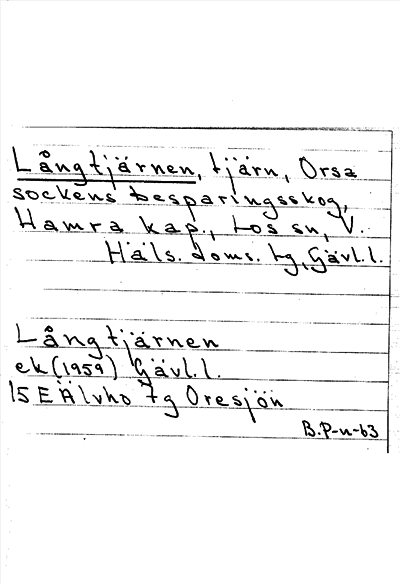 Långtjärnen, tjärn, Orsa
sockens besparingsskog,
Hamra kap., Los sn, V.
Häls. doms. tg, Gävl.l.
Långtjärnen
ek (1959) Gävl.l.
15 E Älvho 7g Oresjön
B.P-n-63